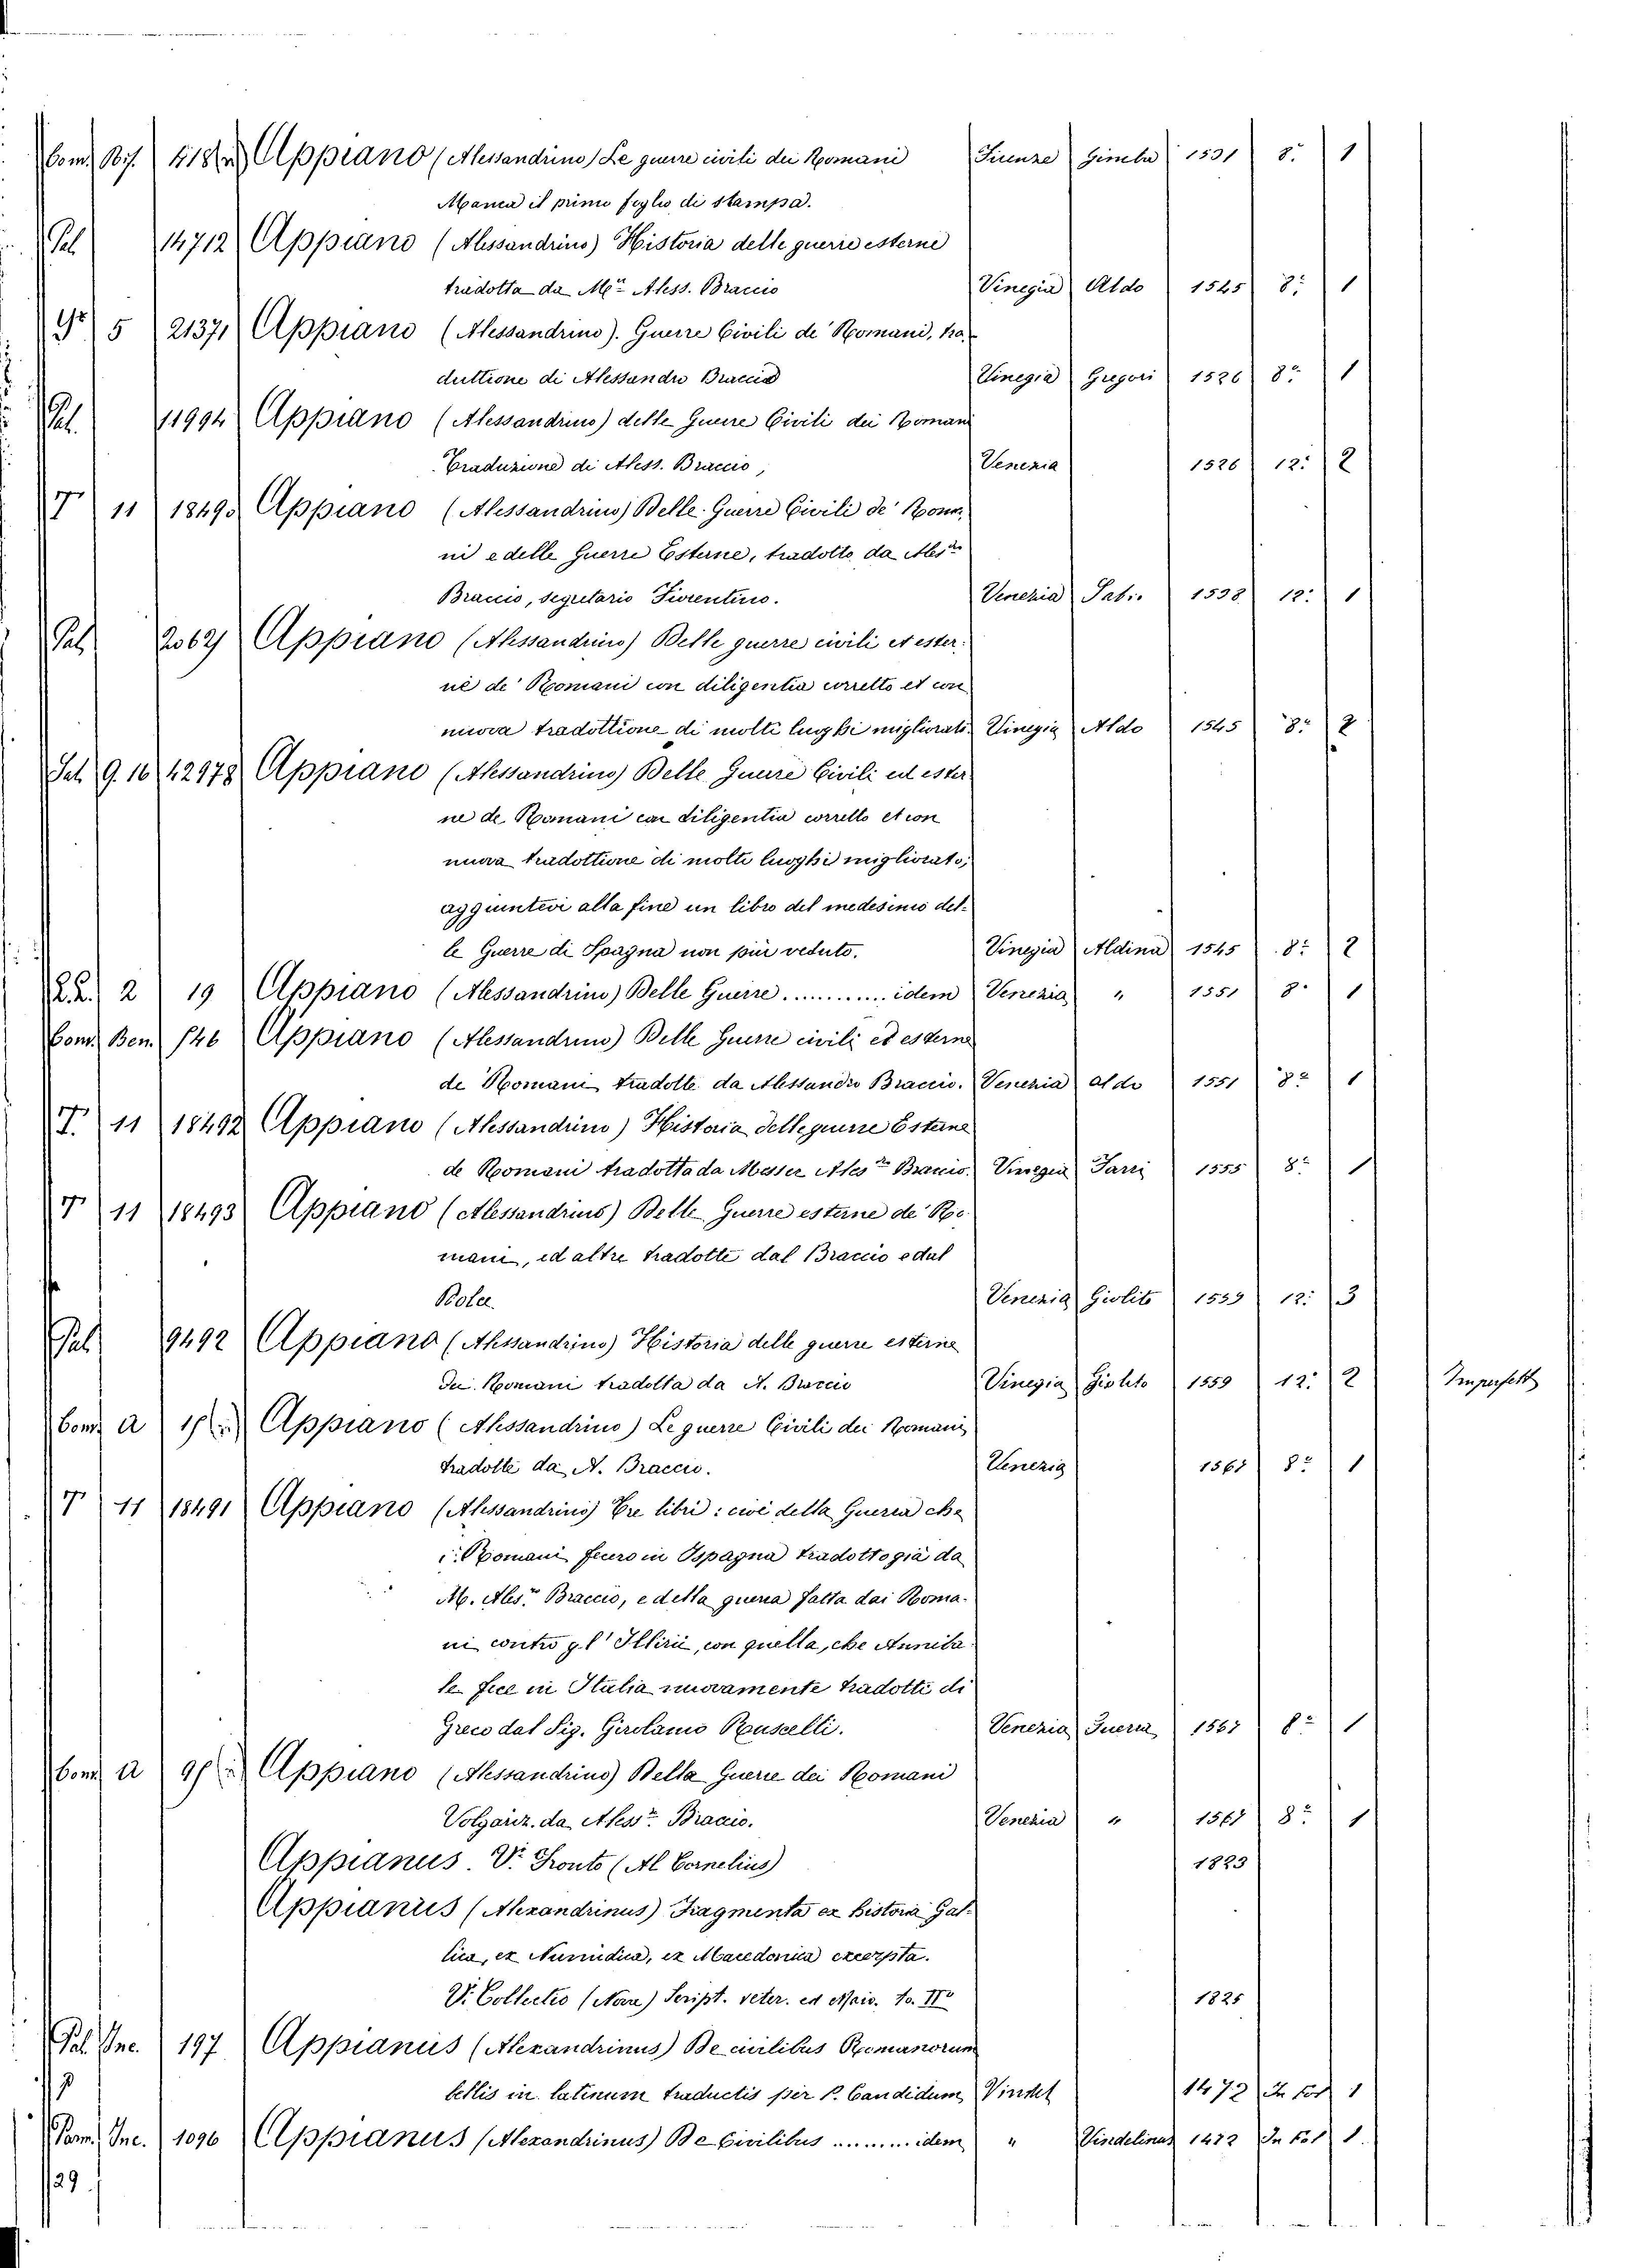 Com. Bif. 418 Appiano (Alessandrino) Le guerre civili dei Romani Firenze 1531 8º 1
Manca il primo foglio di stampa.
Pal. 14712 Appiano (Alessandrino) Historia delle guerre esterne
tradotta da Mr Aless. Braccio Vinegia Aldo 1545 8º 1
5 21371 Appiano (Alessandrino). Guerre Civili de Romani, tra-
duttione di Alessandro Braccio Vinegia Gregori 1526 8º 1
Pal. 11994 Appiano (Alessandrino) delle Guerre Civili dei Romani
Traduzione di Aless. Braccio, Venezia 1526 12º 2
T 11 18495 Appiano (Alessandrino) Delle Guerre Civili de' Roma
ni e delle Guerre Esterne, tradotto da Aless.
Braccio, segretario Fiorentino. Venezia 1538 12º 1
Pal. Appiano (Alessandrino) Delle guerre civili et ester.
ne de' Romani con diligentia corretto et con
nuova tradottione di molti luoghi migliorati. Vinegia Aldo 1545 8º 2
Pal. 9. 10 42978 Appiano (Alessandrino) Delle Guerre Civili ed ester
ne de Romani con diligentia corretto et con
nuova tradottione di molti luoghi migliorato;
aggiuntevi alla fine un libro del medesimo del-
le Guerre di Spagna non più veduto. Vinegia Aldina 1545 8º 2
22. 2 19 Appiano (Alessandrino) Delle Guerre ............ idem Venezia " 1551 8º 1
Com. Ben. 146 Appiano (Alessandrino) Delle Guerre civili et esterne
de Romani tradotte da Alessandro Braccio. Venezia Aldo 1551 8º 1
T. 11 18492 Appiano (Alessandrino) Historia delle guerre Esterne
de Romani tradotta da Messer Ales.º Braccio. Vinegia 1555 8º 1
T 11 18493 Appiano (Alessandrino) Delle Guerre esterne de Ro
mani, ed altre tradotte dal Braccio e dal
Dolce. Venezia Giolito 1559 12º 3
Pal. 9492 Appiano (Alessandrino) Historia delle guerre esterne
dei Romani tradotta da A. Braccio Vinegia Giolito 1559 12º 2 Imperfetto
Com. a Appiano (Alessandrino) Le guerre Civili dei Romani
tradotte da A. Braccio. Venezia 8º 1
T 11 18491 Appiano (Alessandrino) Tre libri: cioè della Guerra che
i Romani fecero in Ispagna tradotto già da
M. Ales.º Braccio, e della guerra fatta dai Roma-
ni contro gl' Illirii, con quella, che Anniba
le fece in Italia nuovamente tradotti di
Greco dal Sig. Girolamo Ruscelli. Venezia Guerra 1567 8º 1
Com. a Appiano (Alessandrino) Della Guerre dei Romani
Volgariz. da Aless.º Braccio. Venezia " 1567 8º 1
Appianus. V. Fronto (M. Cornelius) 1823
Appianus (Alexandrinus) Fragmenta ex historia Gal-
lica, ex Numidica, ex Macedonica excerpta.
V. Collectio (Nova) Script. veter. ed Maio. to. IIº 1825
Pal. Inc. 197 Appianus (Alexandrinus) De civilibus Romanorum
bellis in latinum traductis per P. Candidum Vindel 1472 In fol. 1
Pam. Inc. 1096 Appianus (Alexandrinus) De Civilibus ........ idem " Vindelinas 1472 In fol. 1
29